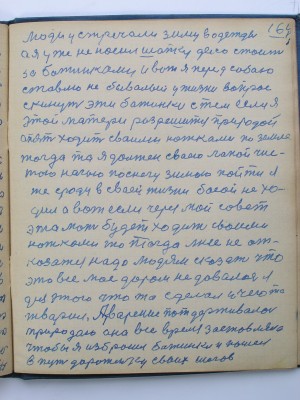 164
Люды устречали зиму в одежды
а я уже не носил шапку дело стоит
за батинками и вот я перед собою
ставлю не бывалый у жизни вопрос
скинуть эти батинки с тем если я
этой матери розрешит природой
опят ходит своими ножками по земле
тогда та я должен своею такой чис-
того насно по снегу зимою пойти я
же сроду в своей жизни босой не хо-
дил а вот если через мой совет
эта мать будет ходит своими
ножками то тогда мне не от-
казатся надо людям сказат что
это все мое даром не довался я
для этого что та сделал и чего та
творил. А варение потдерживалося
природаю она все время заставляла
чтобы я изброси батинки и пошел
в пут дорожку своих шагов